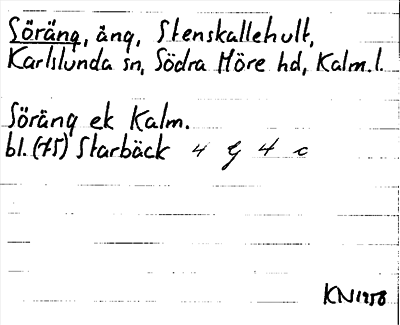 Söräng, äng, Stenskallehult,
Karlslunda sn, Södra Möre hd, Kalm. l.
Söräng ek Kalm.
bl. (75) Starbäck 4 G 4 c
KN 1958